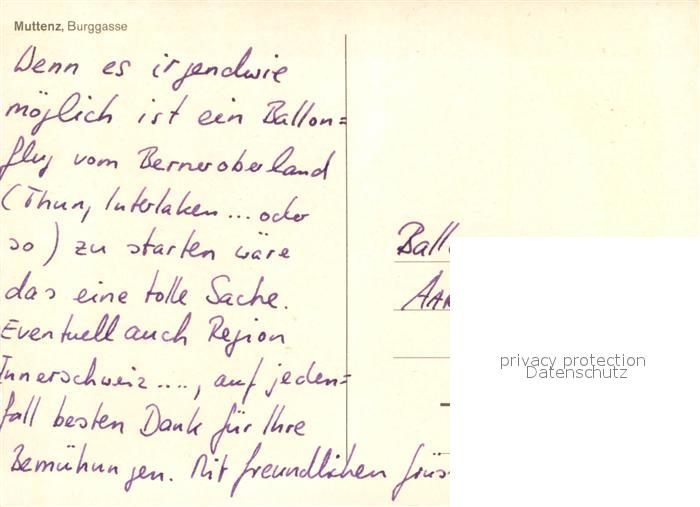 Muttenz, Burggasse
Wenn es irgendwie
möglich ist ein Ballon=
flug vom Berneroberland
(Thun, Interlaken... oder
so) zu starten wäre
das eine tolle Sache.
Eventuell auch Region
Innerschweiz...., auf jeden=
fall besten Dank für Ihre
Bemühungen. Mit freundlichen Grüs
Ball
privacy protection
Datenschutz